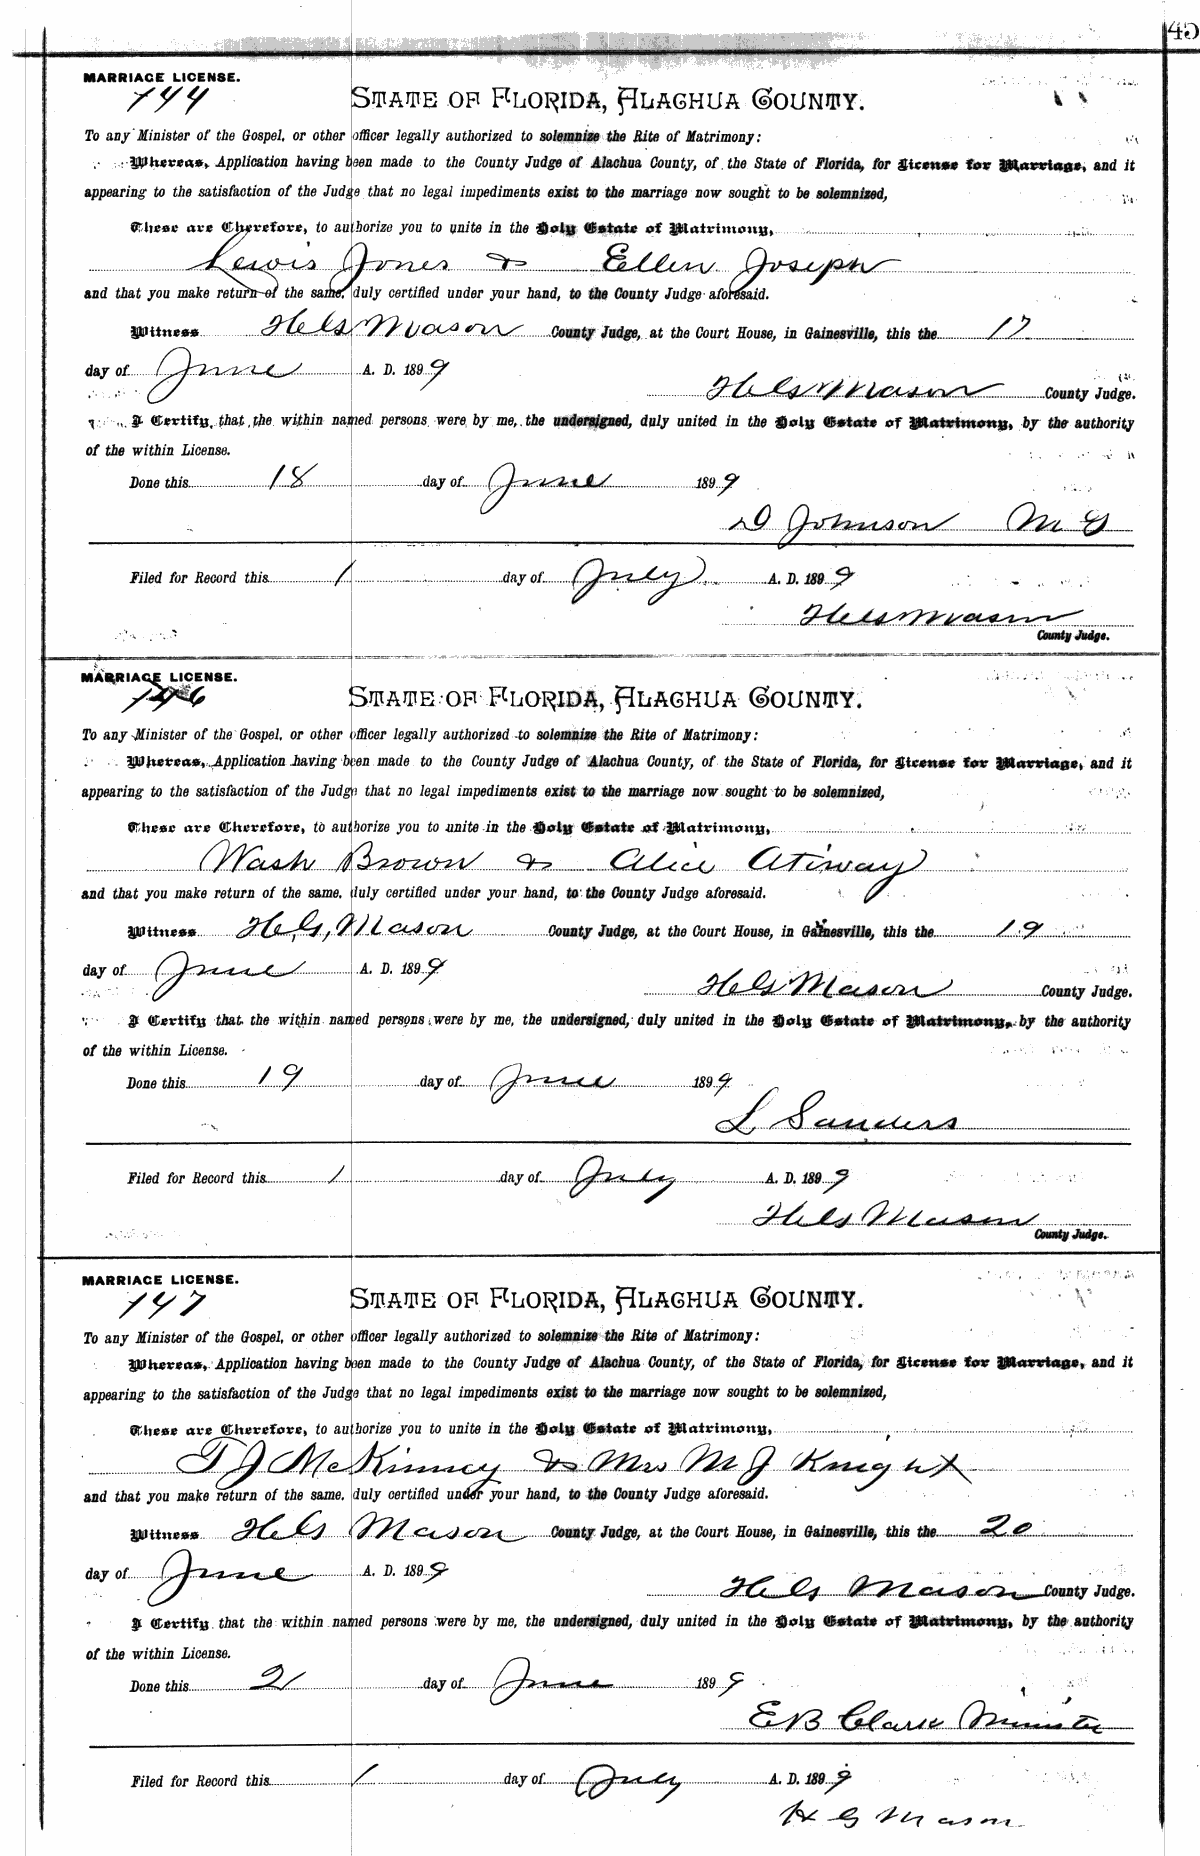 45
MARRIAGE LICENSE.
744
STATE OF FLORIDA, ALACHUA COUNTY.
To any Minister of the Gospel, or other officer legally authorized to solemnize the Rite of Matrimony:
Whereas, Application having been made to the County Judge of Alachua County, of the State of Florida, for License for Marriage, and it
appearing to the satisfaction of the Judge that no legal impediments exist to the marriage now sought to be solemnized,
These are Therefore, to authorize you to unite in the Holy Estate of Matrimony,
Lewis Jones & Ellen Joseph
and that you make return of the same, duly certified under your hand, to the County Judge aforesaid.
Witness H G Mason County Judge, at the Court House, in Gainesville, this the 17
day of June A. D. 1899
H G Mason County Judge.
I Certify, that the within named persons were by me, the undersigned, duly united in the Holy Estate of Matrimony, by the authority
of the within License.
Done this 18 day of June 1899
D Johnson M G
Filed for Record this 1 day of July A. D. 1899
H G Mason
County Judge.
MARRIAGE LICENSE.
746
STATE OF FLORIDA, ALACHUA COUNTY.
To any Minister of the Gospel, or other officer legally authorized to solemnize the Rite of Matrimony:
Whereas, Application having been made to the County Judge of Alachua County, of the State of Florida, for License for Marriage, and it
appearing to the satisfaction of the Judge that no legal impediments exist to the marriage now sought to be solemnized,
These are Therefore, to authorize you to unite in the Holy Estate of Matrimony,
Wash Brown & Alice Atiway
and that you make return of the same, duly certified under your hand, to the County Judge aforesaid.
Witness H. G. Mason County Judge, at the Court House, in Gainesville, this the 19
day of June A. D. 1899
H G Mason County Judge.
I Certify that the within named persons were by me, the undersigned, duly united in the Holy Estate of Matrimony, by the authority
of the within License.
Done this 19 day of June 1899
L Sanders
Filed for Record this 1 day of July A. D. 1899
H G Mason
County Judge.
MARRIAGE LICENSE.
747
STATE OF FLORIDA, ALACHUA COUNTY.
To any Minister of the Gospel, or other officer legally authorized to solemnize the Rite of Matrimony:
Whereas, Application having been made to the County Judge of Alachua County, of the State of Florida, for License for Marriage, and it
appearing to the satisfaction of the Judge that no legal impediments exist to the marriage now sought to be solemnized,
These are Therefore, to authorize you to unite in the Holy Estate of Matrimony,
T J McKinney & Mrs M J Knight
and that you make return of the same, duly certified under your hand, to the County Judge aforesaid.
Witness H G Mason County Judge, at the Court House, in Gainesville, this the 20
day of June A. D. 1899
H G Mason County Judge.
I Certify, that the within named persons were by me, the undersigned, duly united in the Holy Estate of Matrimony, by the authority
of the within License.
Done this 21 day of June 1899
E B Clark Minister
Filed for Record this 1 day of July A. D. 1899
H G Mason